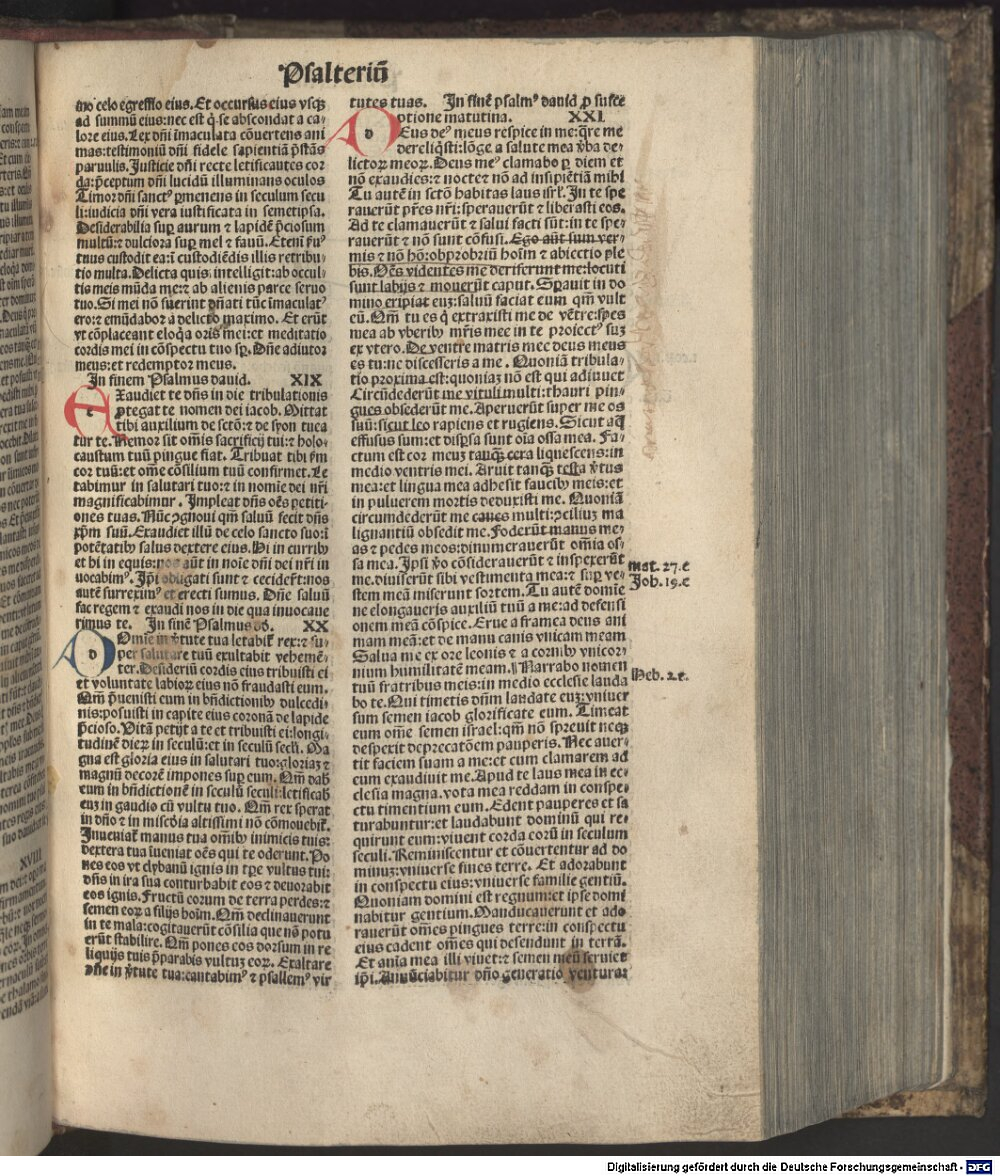 Psalteriū
mo celo egressio eius. Et occursus eius vsq̨
ad summū eius: nec est q̇ se abscondat a ca-
lore eius. Lex dn̄i īmaculata cōuertens ani
mas: testimoniū dn̄i fidele sapientiā p̄stās
paruulis. Justicie dn̄i recte letificantes cor
da: p̄ceptum dn̄i lucidū illuminans oculos
Timor dn̄i sanctꝰ ꝑmenens in seculum secu
li: iudicia dn̄i vera iustificata in semetipsa.
Desiderabilia suꝑ aurum ⁊ lapidē p̄ciosum
multū: ⁊ dulciora suꝑ mel ⁊ fauū. Etenī ẜuꝰ
tuus custodit ea: ī custodiēdis illis retribu-
tio multa. Delicta quis intelligit: ab occul-
tis meis mūda me: ⁊ ab alienis parce seruo
tuo. Si mei nō fuerint dn̄ati tūc īmaculatꝰ
ero: ⁊ emūdabor a delicto maximo. Et erūt
vt cōplaceant eloq̄a oris mei: et meditatio
cordis mei in cōspectu tuo sꝑ. Dn̄e adiutor
meus: et redemptor meus.
In finem Psalmus dauid. XIX
e Xaudiet te dn̄s in die tribulationis
ꝓtegat te nomen dei iacob. Mittat
tibi auxilium de sctō: ⁊ de syon tuea
tur te. Memor sit om̄is sacrificij tui: ⁊ holo-
caustum tuū pingue fiat. Tribuat tibi ẜm
cor tuū: et om̄e cōsilium tuū confirmet. Le
tabimur in salutari tuo: ⁊ in nomīe dei nr̄i
magnificabimur. Impleat dn̄s oēs petiti-
ones tuas. Nūc ꝯgnoui qm̄ saluū fecit dn̄s
xp̄m suū. Exaudiet illū de celo sancto suo: ī
potētatibꝰ salus dextere eius. Hi in curribꝰ
et hi in equis: nos aūt in noīe dn̄i dei nr̄i in
uocabimꝰ. Ip̄i obligati sunt ⁊ ceciderūt: nos
autē surreximꝰ et erecti sumus. Dn̄e saluū
fac regem ⁊ exaudi nos in die qua inuocaue
rimus te. In finē Psalmus dō. XX
d Omīe in v̇tute tua letabit̄ rex: ⁊ su-
per salutare tuū exultabit vehemē-
ter. Desideriū cordis eius tribuisti ei
et voluntate labioꝝ eius nō fraudasti eum.
Qm̄ p̄uenisti eum in bn̄dictionibꝰ dulcedi-
nis: posuisti in capite eius coronā de lapide
p̄cioso. Vitā petijt a te et tribuisti ei: longi-
tudinē dieꝝ in seculū: et in seculū sec̄li. Ma
gna est gloria eius in salutari tuo: gloriaꝫ ⁊
magnū decorē impones suꝑ eum. Qm̄ dab̄
eum in bn̄dictionē in seculū seculi: letificab̄
euꝫ in gaudio cū vultu tuo. Qm̄ rex sperat
in dn̄o ⁊ in miscd̄ia altissimi nō cōmouebit̄.
Inueniat̄ manus tua om̄ibꝰ inimicis tuis:
dextera tua īueniat oēs qui te oderunt. Po
nes eos vt clybanū ignis in tꝑe vultus tui:
dn̄s in ira sua conturbabit eos ⁊ deuorabit
eos ignis. Fructū eorum de terra perdes: ⁊
semen eoꝝ a filijs hoīm. Qm̄ declinauerunt
in te mala: cogitauerūt cōsilia que nō potu
erūt stabilire. Qm̄ pones eos dorsum in re
liquijs tuis p̄parabis vultuꝫ eoꝝ. Exaltare
dn̄e in v̇tute tua: cantabimꝰ ⁊ psallemꝰ vir
tutes tuas. In finē psalmꝰ dauid ꝓ susce
ptione matutina. XXI
d Eus deꝰ meus respice in me: q̄re me
dereliq̇sti: lōge a salute mea v̇ba de-
lictoꝝ meoꝝ. Deus meꝰ clamabo ꝑ diem et
nō exaudies: ⁊ nocte ⁊ nō ad insipiētiā mihi
Tu autē in sctō habitas laus isrl̄. In te spe
rauerūt pr̄es nr̄i: sperauerūt ⁊ liberasti eos.
Ad te clamauerūt ⁊ salui facti sūt: in te spe-
rauerūt ⁊ nō sunt cōfusi. Ego aūt sum ver-
mis ⁊ nō hō: obprobriū hoīm ⁊ abiectio ple
bis. Oēs videntes me deriserunt me: locuti
sunt labijs ⁊ mouerūt caput. Sꝑauit in do
mino eripiat euꝫ: saluū faciat eum qm̄ vult
eū. Qm̄ tu es q̇ extraxisti me de vētre: spes
mea ab vberibꝰ mr̄is mee in te proiectꝰ suꝫ
ex vtero. De ventre matris mec deus meus
es tu: ne discesseris a me. Quoniā tribula-
tio proxima est: quoniaꝫ nō est qui adiuuet
Circūdederūt me vituli multi: thauri pin-
gues obsederūt me. Aperuerūt super me os
suū: sicut leo rapiens et rugiens. Sicut aq̄
effusus sum: et disꝑsa sunt oīa ossa mea. Fa-
ctum est cor meuꝫ tanq̄ꝫ cera liquescens: in
medio ventris mei. Aruit tanq̄ꝫ testa v̇tus
mea: et lingua mea adhesit faucibꝰ meis: et
in puluerem mortis deduxisti me. Quoniā
circumdederūt me canes multi: ꝯciliuꝫ ma
lignantiū obsedit me. Foderūt manus me-
as ⁊ pedes meos: dinumerauerūt om̄ia os-
sa mea. Ipsi v̇o cōsiderauerūt ⁊ inspexerūt
me. diuiserūt sibi vestimenta mea: ⁊ suꝑ ve-
stem meā miserunt sortem. Tu autē domīe
ne elongaueris auxiliū tuū a me: ad defensi
onem meā cōspice. Erue a framea deus ani
mam meā: et de manu canis vnicam meam
Salua me ex ore leonis ⁊ a cornibꝰ vnicor-
nium humilitatē meam. Narrabo nomen
tuū fratribus meis: in medio ecclesie lauda
bo te. Qui timetis dn̄m laudate euꝫ: vniuer
sum semen iacob glorificate eum. Timeat
eum om̄e semen israel: qm̄ nō spreuit neq̨
despexit deprecatōem pauperis. Nec auer-
tit faciem suam a me: et cum clamarem ad
eum exaudiuit me. Apud te laus mea in ec-
clesia magna. vota mea reddam in conspe-
ctu timentium eum. Edent pauperes et sa
turabuntur: et laudabunt dominū qui re-
quirunt eum: viuent corda eorū in seculum
seculi. Reminiscentur et cōuertentur ad do
minuꝫ: vniuerse fines terre. Et adorabunt
in conspectu eius: vniuerse familie gentiū.
Quoniam domini est regnum: et ipse domi
nabitur gentium. Manducauerunt et ado
rauerūt om̄es pingues terre: in conspectu
eius cadent om̄es qui desendunt in terrā.
Et aīa mea illi viuet: ⁊ semen meū seruiet
ip̄i. Annūciabitur dn̄o generatio venturaꝫ
mat. 27. e
Joh. 19. c
Heb. 2. c.
Digitalisierung gefördert durch die Deutsche Forschungsgemeinschaft - DFG